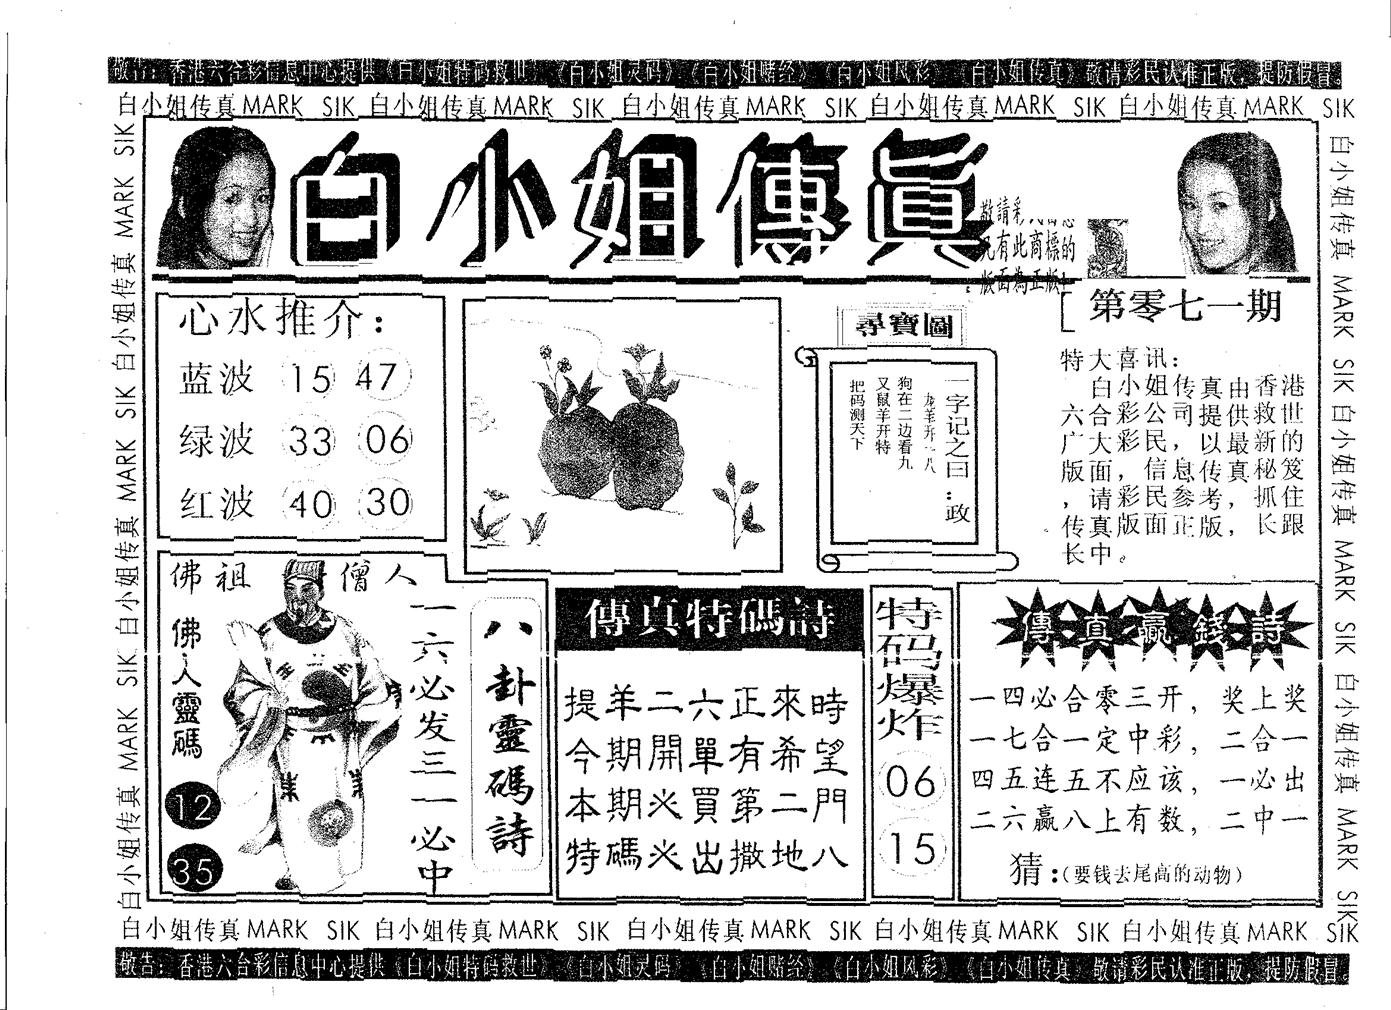 敬告：香港六合彩信息中心提供《白小姐特码救世》《白小姐灵码》《白小姐赌经》《白小姐风彩》《白小姐传真》敬请彩民认准正版，提防假冒。
白小姐传真 MARK SIK 白小姐传真 MARK SIK 白小姐传真 MARK SIK 白小姐传真 MARK SIK 白小姐传真 MARK SIK
白小姐传真 MARK SIK 白小姐传真 MARK SIK 白小姐传真 MARK SIK
白小姐傳眞
敬請彩
凡有此商標的
版面為正版
第零七一期
心水推介：
蓝波 15 47
绿波 33 06
红波 40 30
尋寶圖
一字记之曰：政
龙羊开一八
狗在二边看九
又鼠羊开特
把码测天下
特大喜讯：
白小姐传真由香港
六合彩公司提供救世
广大彩民，以最新的
版面，信息传真秘笈
，请彩民参考，抓住
传真版面正版，长跟
长中。
佛祖 僧人
佛人靈碼
12
35
一六必发三一必中
八卦靈碼詩
傳真特碼詩
提羊二六正來時
今期開單有希望
本期火買第二門
特碼火出撒地八
特码爆炸
06
15
傳真贏錢詩
一四必合零三开，奖上奖
一七合一定中彩，二合一
四五连五不应该，一必出
二六赢八上有数，二中一
猜：(要钱去尾高的动物)
白小姐传真 MARK SIK 白小姐传真 MARK SIK 白小姐传真 MARK SIK
白小姐传真 MARK SIK 白小姐传真 MARK SIK 白小姐传真 MARK SIK 白小姐传真 MARK SIK 白小姐传真 MARK SIK
敬告：香港六合彩信息中心提供《白小姐特码救世》《白小姐灵码》《白小姐赌经》《白小姐风彩》《白小姐传真》敬请彩民认准正版，提防假冒。